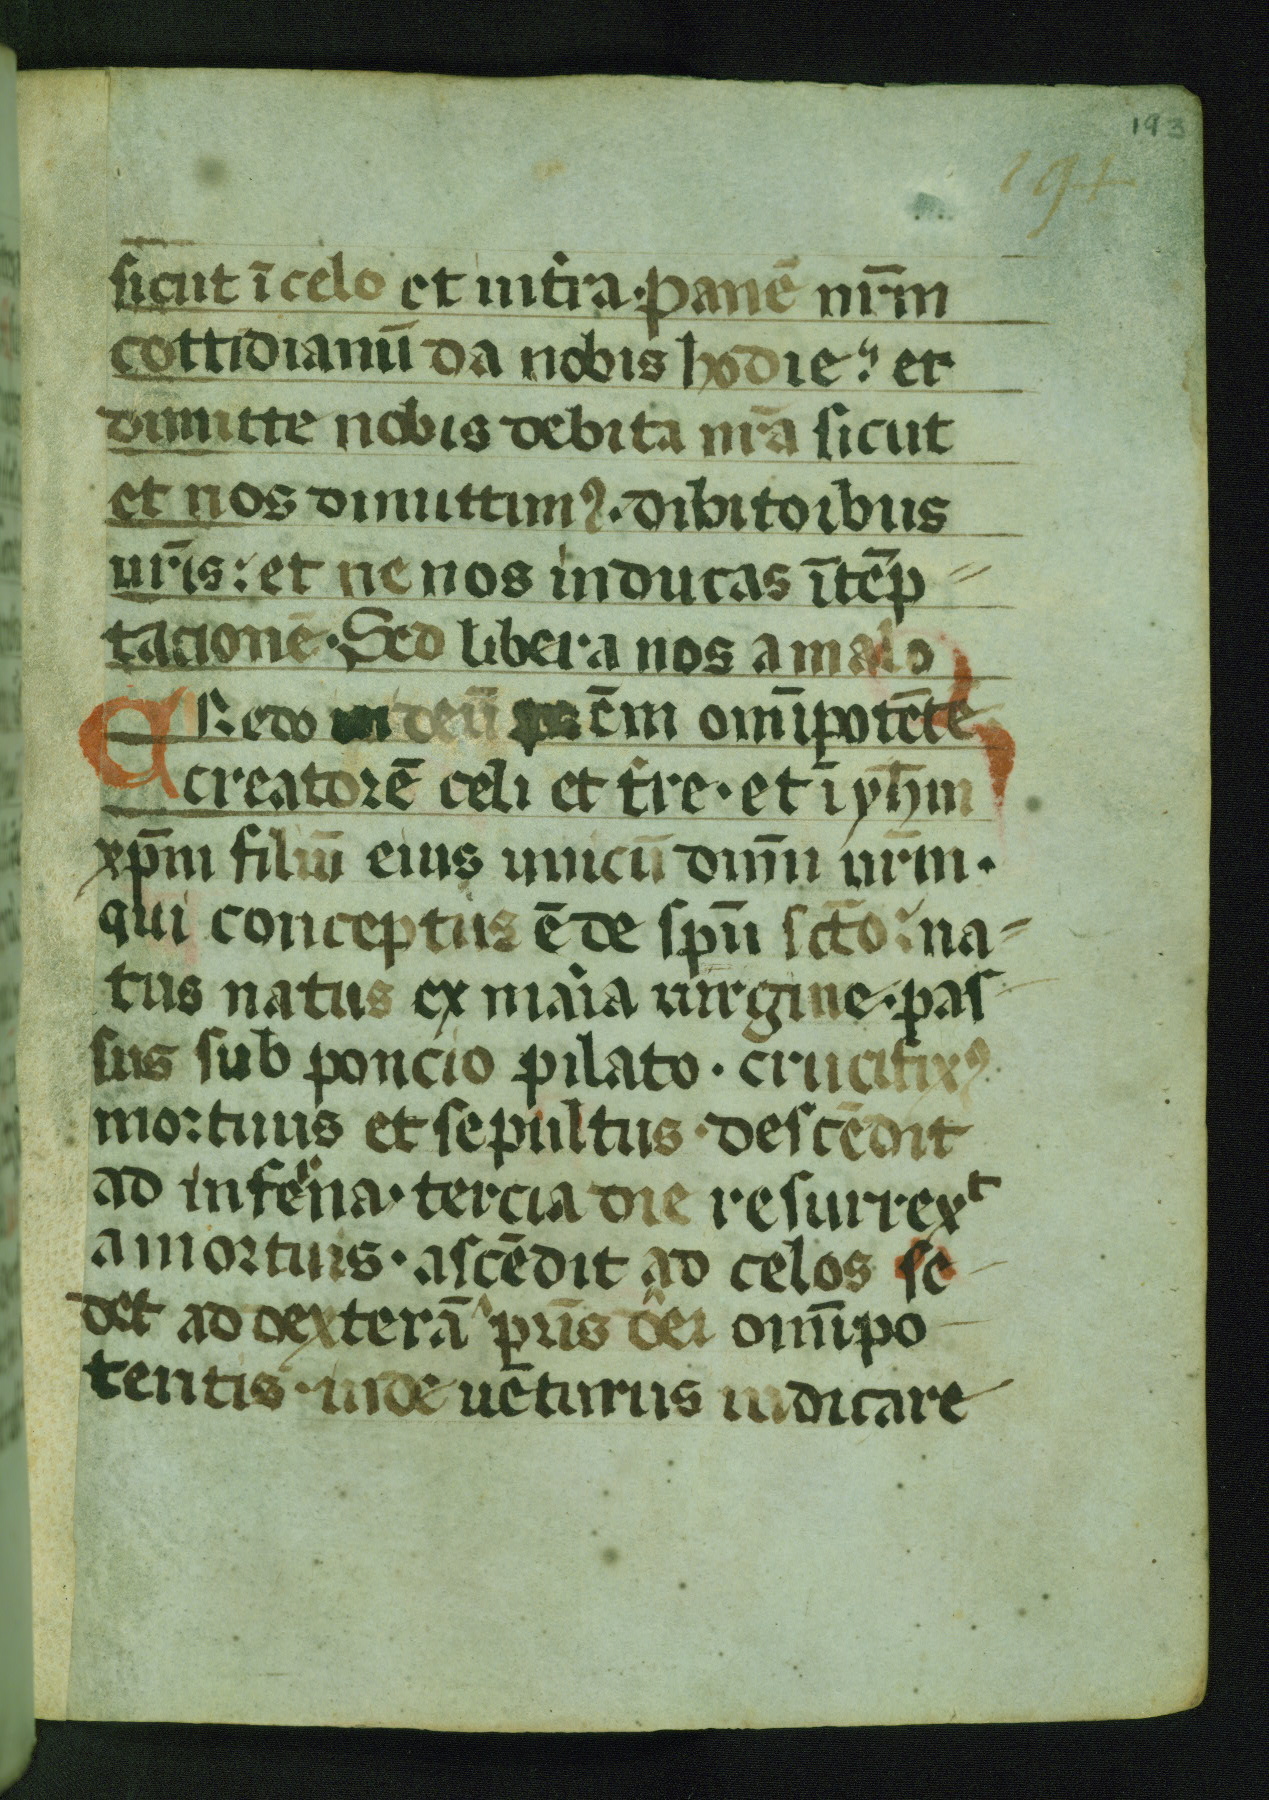 193
191
sicut ī celo et in tr̄a. panē nr̄m
cottidianū da nobis hodie: et
dimitte nobis debita nr̄a sicut
et nos dimittimꝰ. dibitoibus
nr̄is: et ne nos inducas ītēp
tacionē. Sed libera nos a malo
CRedo in deū pr̄ēm om̄ipotētē
creatorē celi et tr̄e. et ī yh̄m
xp̄m filiū eius unicū dn̄m nr̄m.
qui conceptus ē de sp̄u sc̄to: na
tus natus ex maria uirgine. pas
sus sub poncio pilato. crucifixꝰ
mortuus et sepultus. descēdit
ad inferna. tercia die resurrexᵗ
a mortuis. ascēdit ad celos se
det ad dexterā pr̄is dei om̄ipo
tentis. inde uēturus iudicare